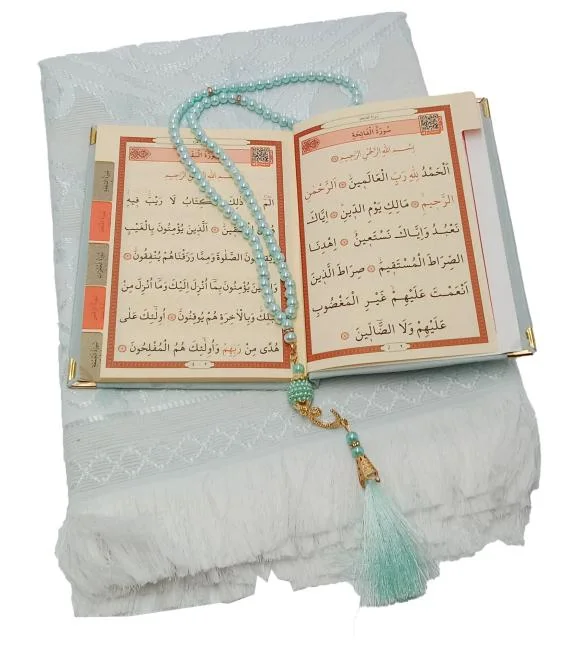 سُورَةُ الْفَاتِحَةِ
بِسْمِ اللهِ الرَّحْمٰنِ الرَّحِيمِ
اَلْحَمْدُ لِلّٰهِ رَبِّ الْعَالَمِينَۙ اَلرَّحْمٰنِ
الرَّحِيمِۙ مَالِكِ يَوْمِ الدِّينِۜ اِيَّاكَ
نَعْبُدُ وَاِيَّاكَ نَسْتَعِينُۜ اِهْدِنَا
الصِّرَاطَ الْمُسْتَقِيمَۙ صِرَاطَ الَّذِينَ
اَنْعَمْتَ عَلَيْهِمْ غَيْرِ الْمَغْضُوبِ
عَلَيْهِمْ وَلَا الضَّالِّينَ
سُورَةُ
بِسْمِ اللهِ الرَّحْمٰنِ الرَّحِيمِ
الٓمٓ ذٰلِكَ الْكِتَابُ لَا رَيْبَ فِيهِ
هُدًى اَلَّذِينَ يُؤْمِنُونَ بِالْغَيْبِ
الصَّلٰوةَ وَمِمَّا رَزَقْنَاهُمْ يُنْفِقُونَ
يُؤْمِنُونَ بِمَٓا اُنْزِلَ اِلَيْكَ وَمَٓا اُنْزِلَ مِنْ
وَبِالْاٰخِرَةِ هُمْ يُوقِنُونَ اُولٰٓئِكَ عَلٰى
هُدًى مِنْ رَبِّهِمْ وَاُولٰٓئِكَ هُمُ الْمُفْلِحُونَ